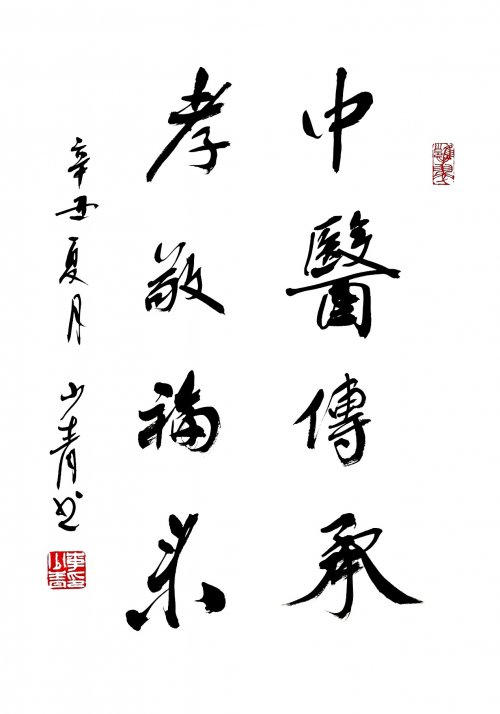 中醫傳承
孝敬福来
辛丑夏月 山青书